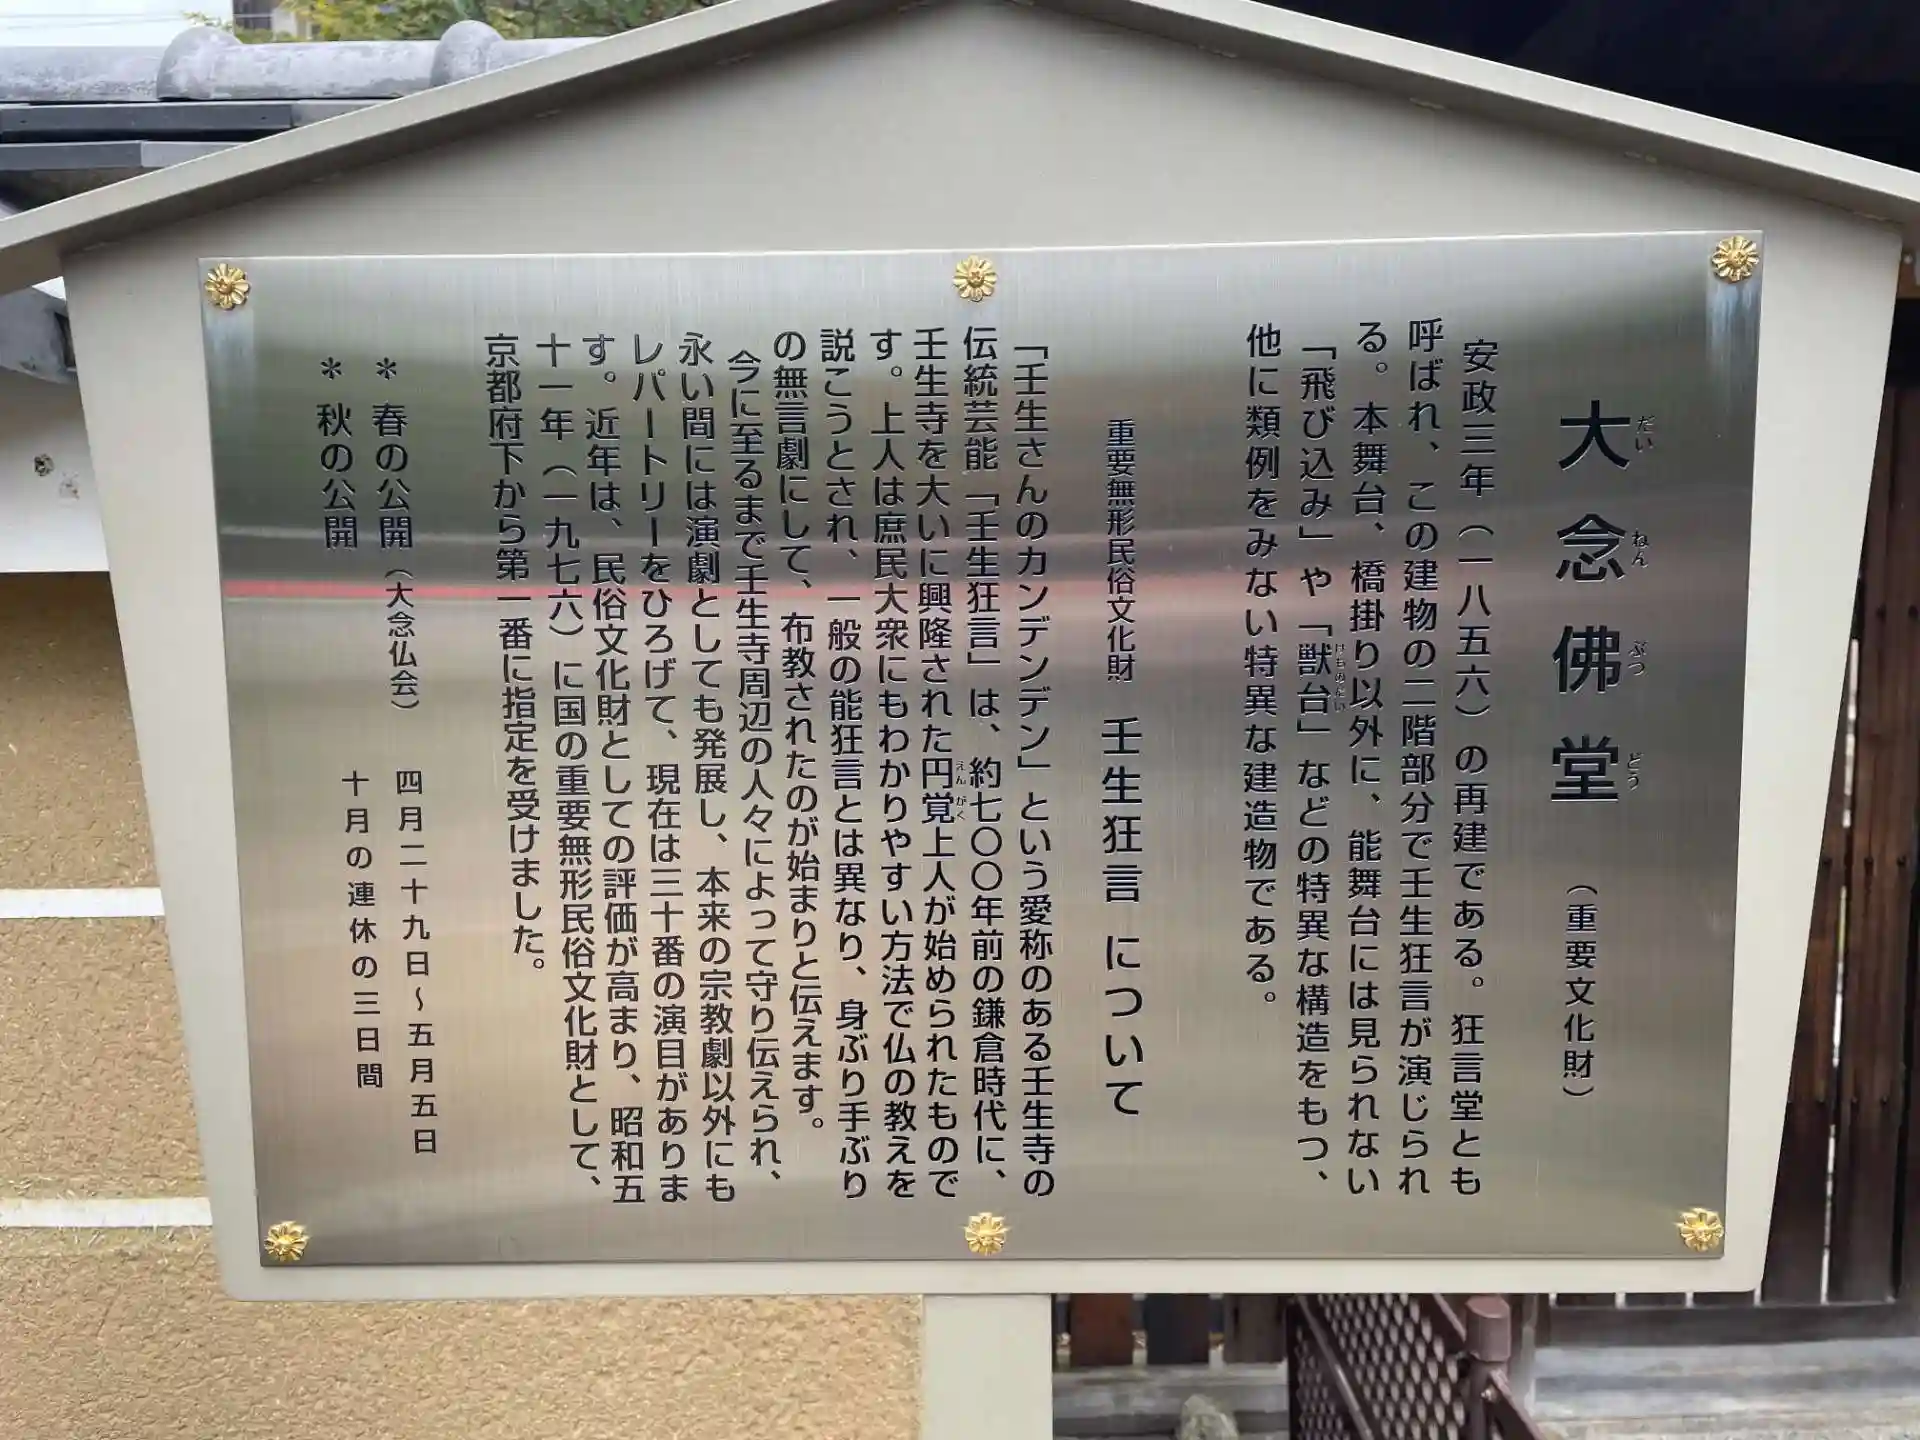 大念佛堂（重要文化財）
だいねんぶつどう
安政三年（一八五六）の再建である。狂言堂とも
呼ばれ、この建物の二階部分で壬生狂言が演じられ
る。本舞台、橋掛り以外に、能舞台には見られない
「飛び込み」や「獣台」などの特異な構造をもつ、
けものだい
他に類例をみない特異な建造物である。
重要無形民俗文化財　壬生狂言について
「壬生さんのカンデンデン」という愛称のある壬生寺の
伝統芸能「壬生狂言」は、約七〇〇年前の鎌倉時代に、
壬生寺を大いに興隆された円覚上人が始められたもので
えんがく
す。上人は庶民大衆にもわかりやすい方法で仏の教えを
説こうとされ、一般の能狂言とは異なり、身ぶり手ぶり
の無言劇にして、布教されたのが始まりと伝えます。
今に至るまで壬生寺周辺の人々によって守り伝えられ、
永い間には演劇としても発展し、本来の宗教劇以外にも
レパートリーをひろげて、現在は三十番の演目がありま
す。近年は、民俗文化財としての評価が高まり、昭和五
十一年（一九七六）に国の重要無形民俗文化財として、
京都府下から第一番に指定を受けました。
＊春の公開（大念仏会）　四月二十九日～五月五日
＊秋の公開　十月の連休の三日間